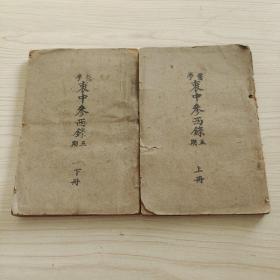 醫學
衷中參西錄
五期
上冊
醫學
衷中參西錄
五期
下冊